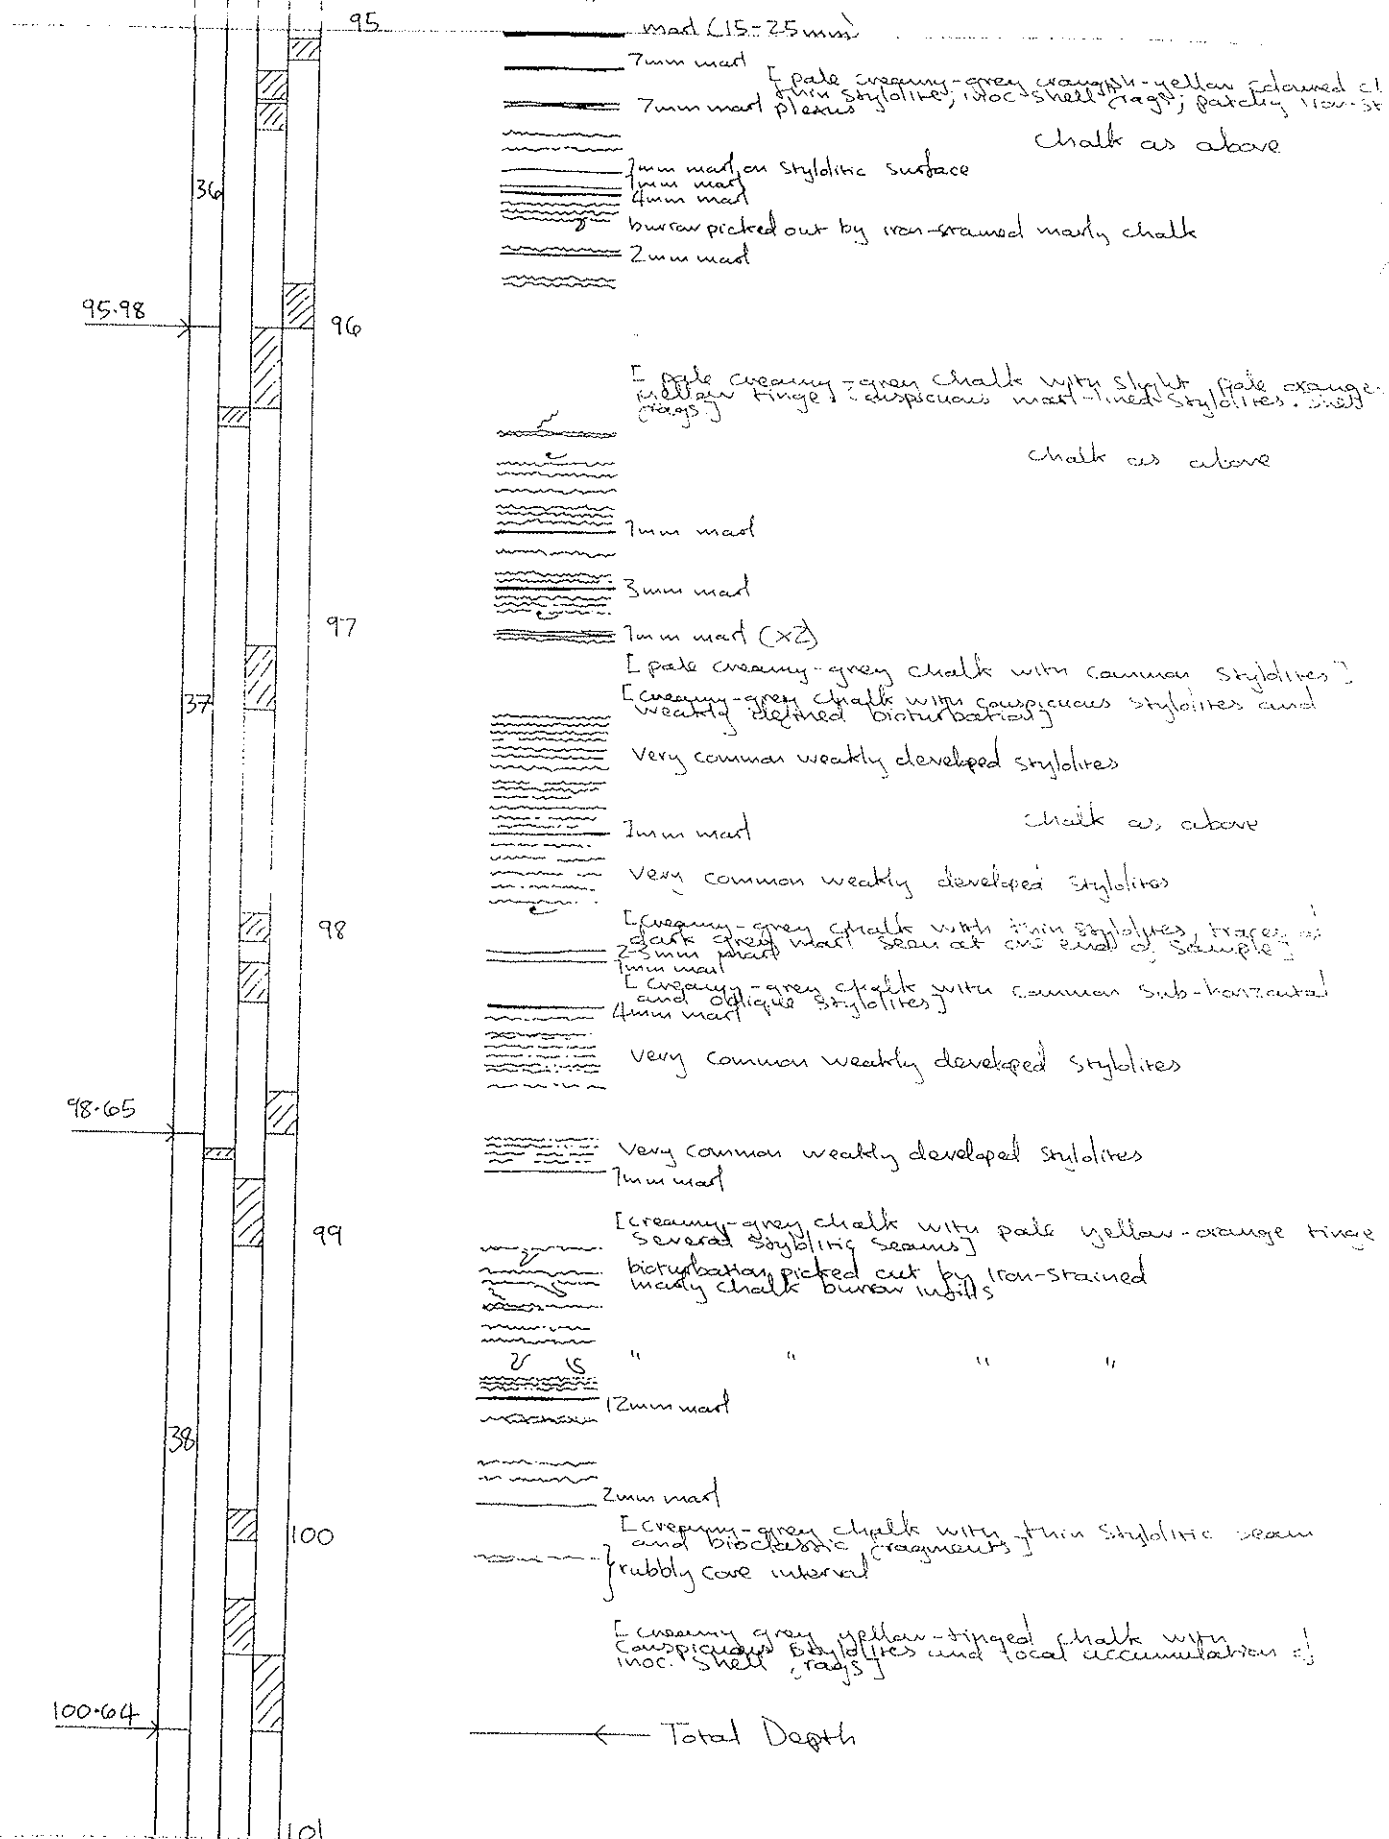 95
marl (15-25mm)
7mm marl
[pale creamy-grey orangish-yellow coloured
thin stylolite; inoc shell frags; patchy iron-
7mm marl plexus
Chalk as above
1mm marl on stylolitic surface
1mm marl
4mm marl
36
burrow picked out by iron-stained marly chalk
2mm marl
95.98
96
[pale creamy-grey chalk with slight pale orange-
yellow tinge. Conspicuous marl-lined stylolites. Shell
frags.]
Chalk as above
1mm marl
3mm marl
97
1mm marl (x2)
[pale creamy-grey chalk with common stylolites]
37
[creamy-grey chalk with conspicuous stylolites and
weakly defined bioturbation]
Very common weakly developed stylolites
Chalk as above
1mm marl
Very common weakly developed stylolites
98
[creamy-grey chalk with thin stylolites, traces of
dark grey marl seen at one end of sample]
2-3mm marl
1mm marl
[creamy-grey chalk with common sub-horizontal
and oblique stylolites]
4mm marl
Very common weakly developed stylolites
98.65
Very common weakly developed stylolites
1mm marl
99
[creamy-grey chalk with pale yellow-orange tinge
several stylolitic seams]
bioturbation picked out by iron-stained
marly chalk burrow infills
" " " "
12mm marl
38
2mm marl
100
[creamy-grey chalk with thin stylolitic seam
and bioclastic fragments]
rubbly core interval
[creamy grey yellow-tinged chalk with
conspicuous stylolites and local accumulation of
inoc. shell frags]
100.64
Total Depth
101